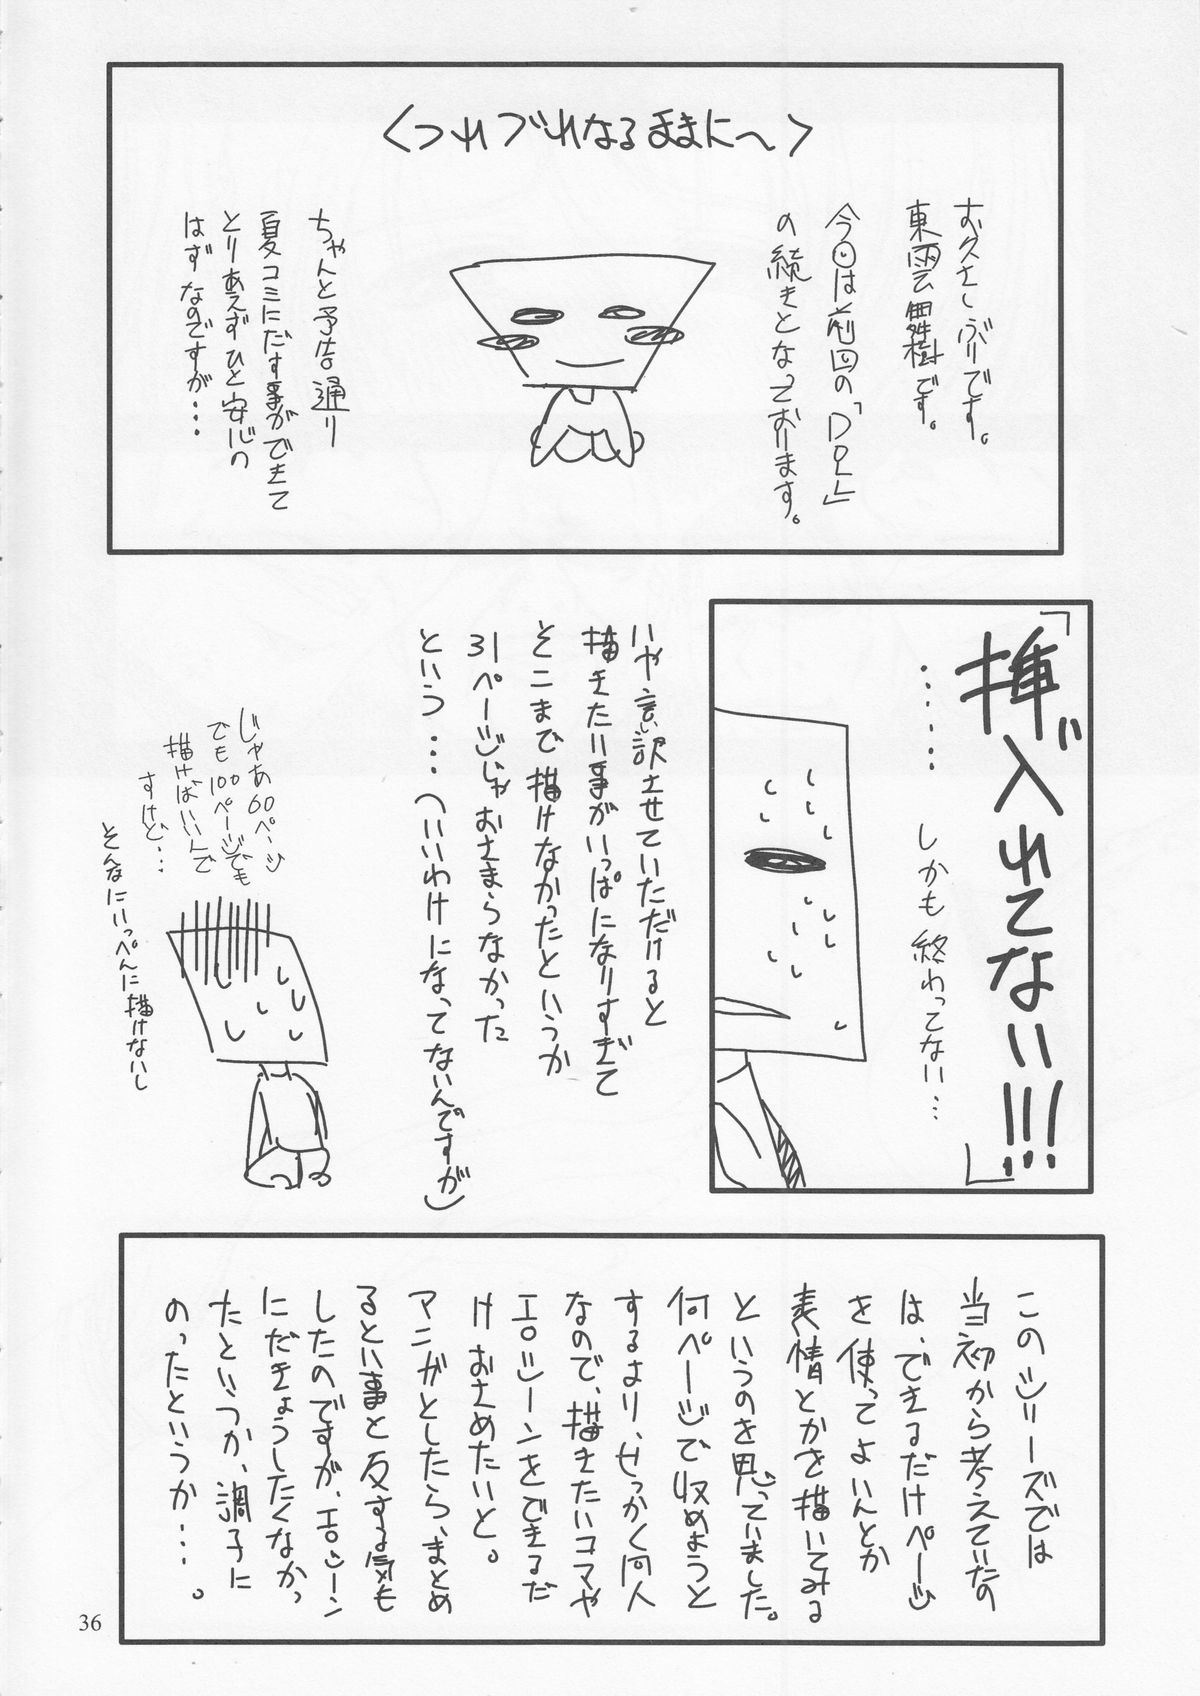 ＜つれづれなるままに～＞
お久さしぶりです。
東雲龑樹です。
今回は前回の「DOL」
の続きとなっております。
ちゃんと予告通り
夏コミにだす事ができて
とりあえずひと安心の
はずなのですが・・・
「挿入れてない!!!」
・・・・・・しかも終わってない・・・
いや言い訳させていただけると
描きたい事がいっぱいになりすぎて
そこまで描けなかったというか
31ページじゃおさまらなかった
という・・・(いいわけになってないんですが)
じゃあ60ページ
でも100ページでも
描けばいいんで
すけど・・・
そんなにいっぺんに描けないし
このシリーズでは
当初から考えていたの
は、できるだけページ
を使ってよいんとか
表情とかを描いてみる
というのを思っていました。
何ページで収めようと
するより、せっかく同人
なので、描きたいコマや
エロシーンをできるだ
けおさめたいと。
マンガとしたら、まとめ
るという事と反する気も
したのですが、エロシーン
にだきょうしたくなかっ
たといつか、調子に
のったというか・・・。
36